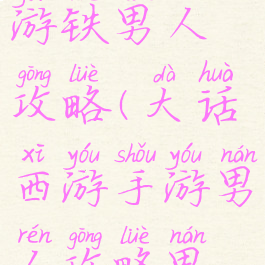 游铁男人
gōng lüè dà huà
攻略(大话
xī yóu shǒu yóu nán
西游手游男
rén gōng lüè nán
人攻略男